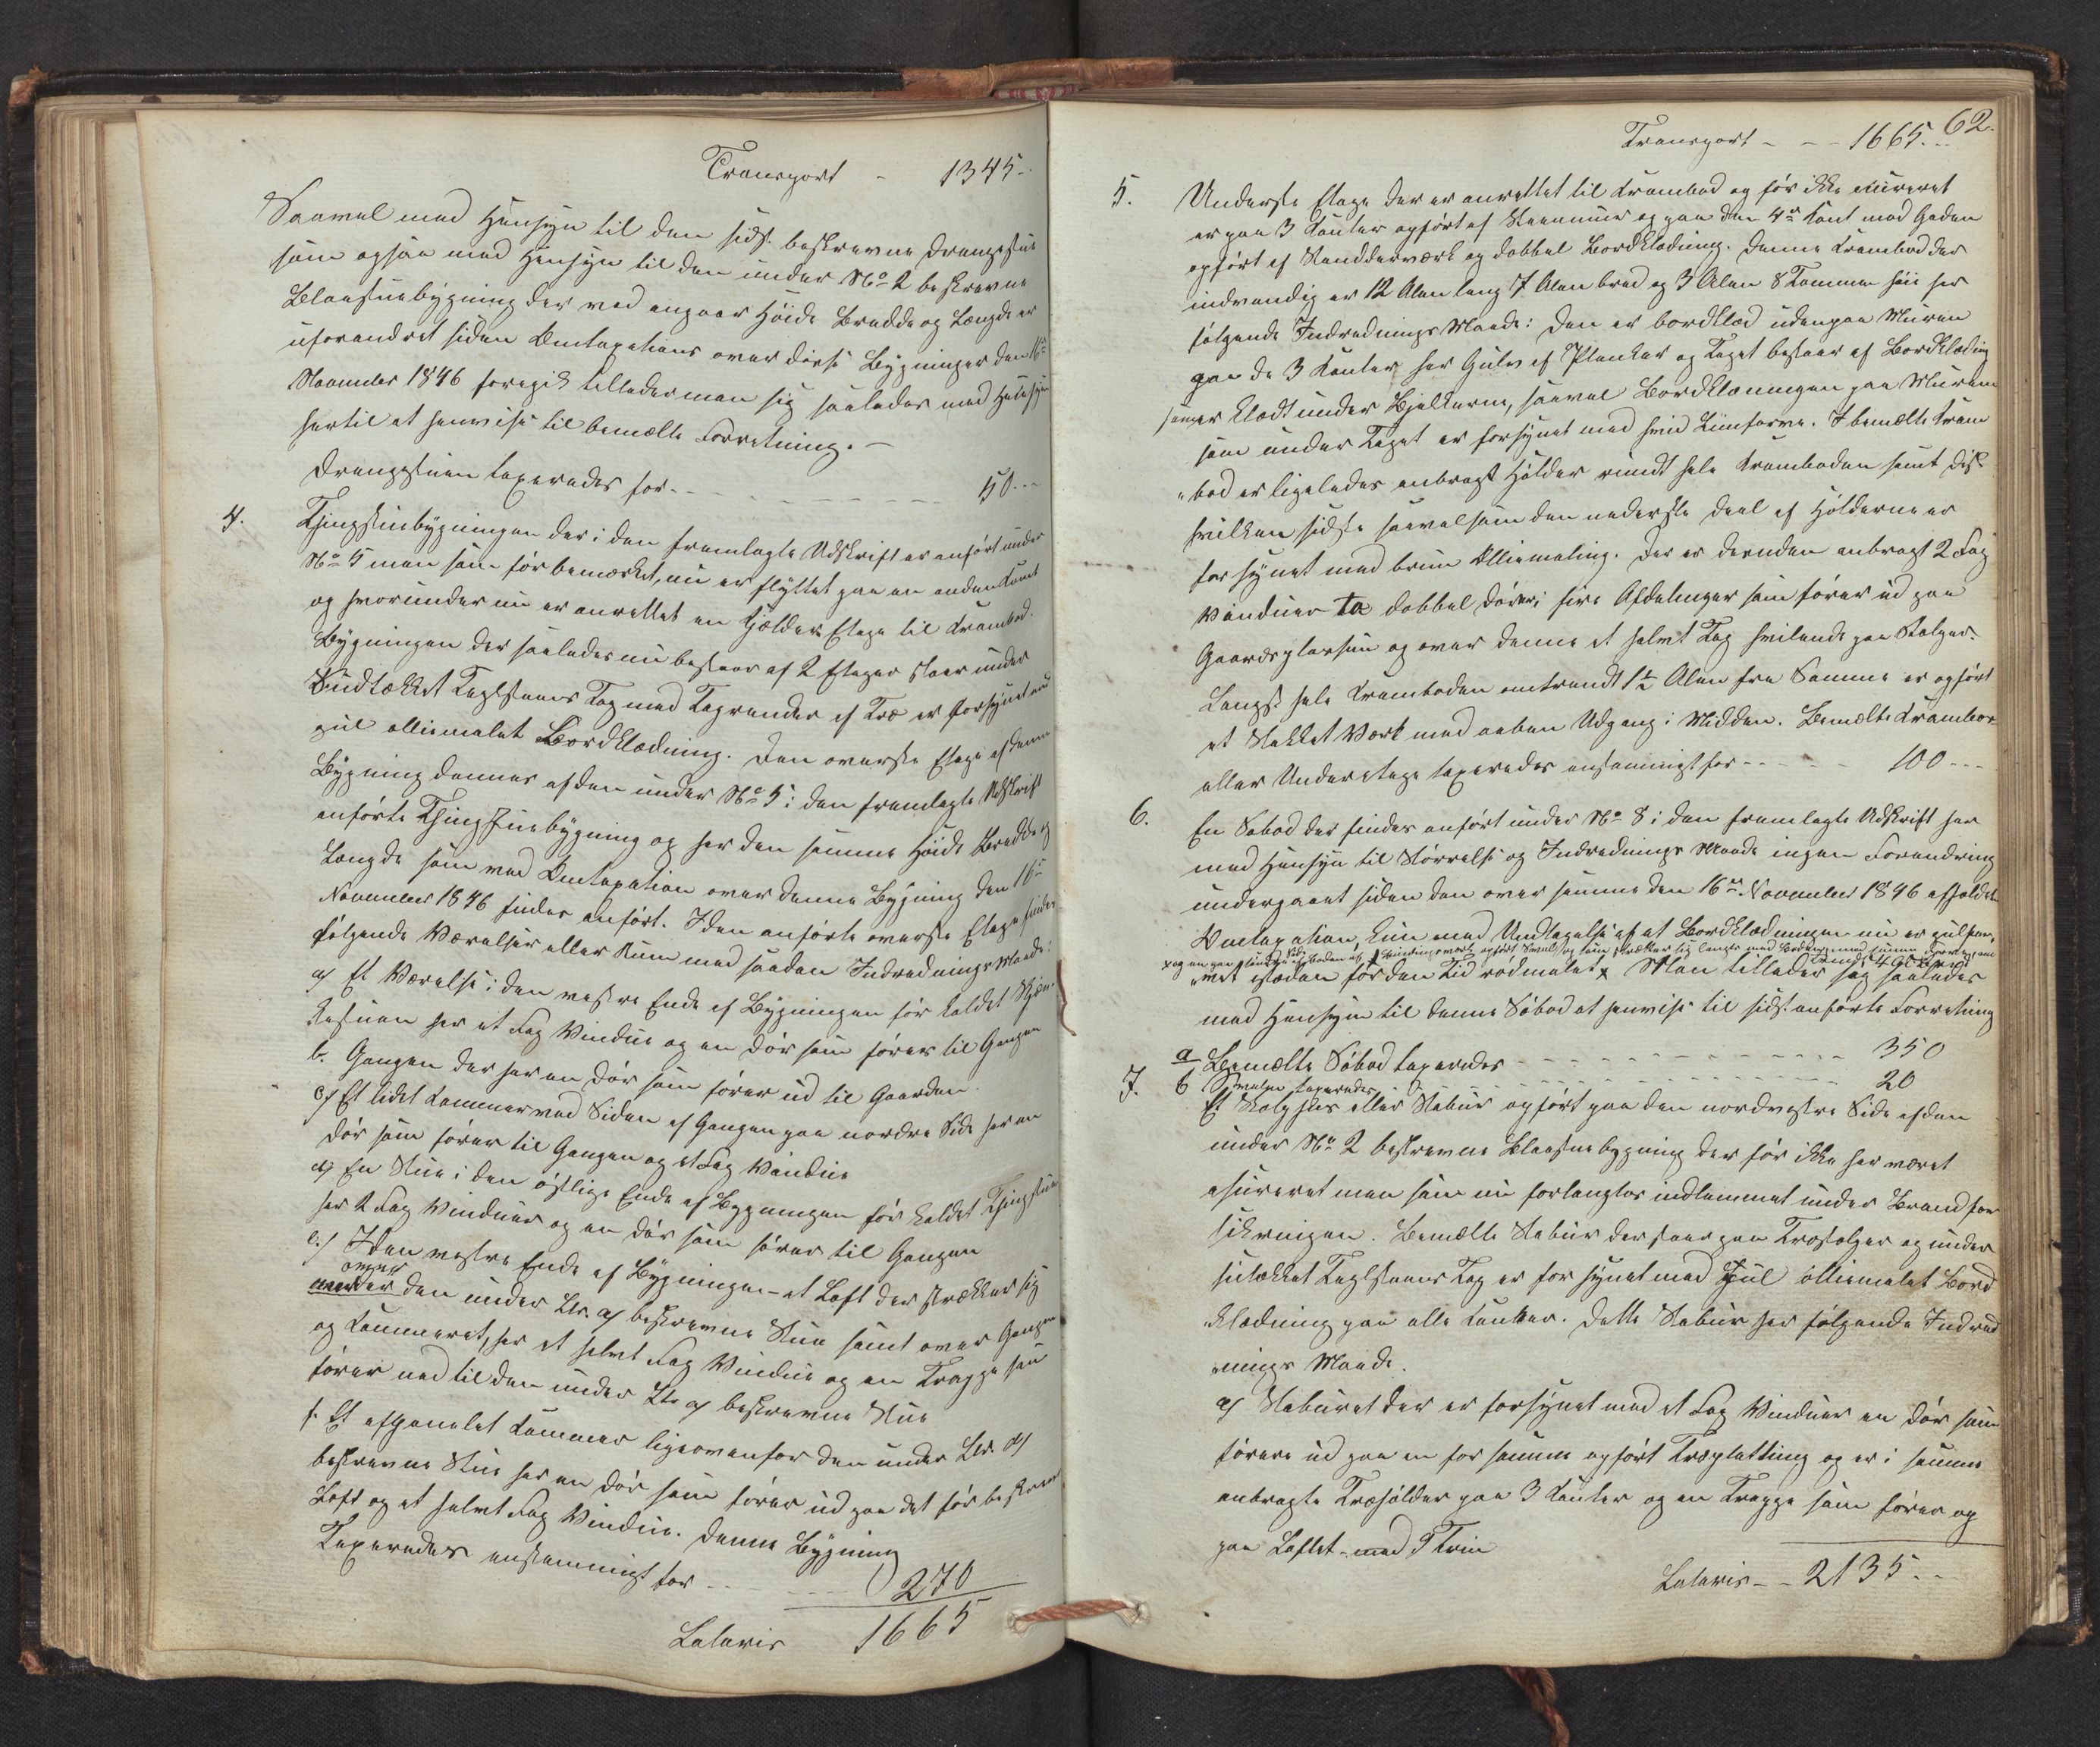 Transport - 1345..
Saavel med Hensyn til den sidst beskrevne Drengestue
som ogsaa med Hensyn til den under No 2 beskrevne
Blaastuebygning der ved angaar Høide Bredde og Længde er
uforandret siden Omtaxations over disse Bygninger den 16de
November 1846 foregik tillader man sig saaledes med Hensyn
hertil at henvise til bemelte Forretning. -
Drengestuen taxeredes for - - - 50 - -
4. Thingstuebygningen der i den fremlagte Udskrift er anført under
No 5 men som før bemærket, nu er flyttet paa en anden Tomt
og hvorunder nu er anrettet en Kjelder Etage til Krambod.
Bygningen der saaledes nu bestaar af 2 Etager staar under
Sudtækket Teglsteens Tag med Tagrender af Træ er forsynet med
gul oliemalet Bordklædning. Den øverste Etage af denne
Bygning dannes af den under No 5 i den fremlagte Udskrift
anførte Thingstuebygning og har den samme Høide Bredde og
Længde som ved Omtaxation over denne Bygning den 16de
November 1846 findes anført. I den anførte øverste Etage findes
følgende Værelser eller Rum med saadan Indredningsmaade:
a) Et Værelse i den vestre Ende af Bygningen før kaldet
har et Fag Vindue og en Dør som fører til Gangen
b. Gangen der har en Dør som fører ud til Gaarden.
c) Et lidet Kammer ved Siden af Gangen paa nordre Side har en
Dør som fører til Gangen og et Fag Vindue
d) En Stue i den østlige Ende af Bygningen før kaldet Thingstue
har 2 Fag Vinduer og en Dør som fører til Gangen
e.) I den vestre Ende af Bygningen - et Loft der strækker sig
over
under den under Ltr. a) beskrevne Stue samt over Gangen
og Kammeret, har et halvt Fag Vindue og en Trappe som
fører ned til den under Ltr a) beskrevne Stue
f. Et afpanelet Kammer ligeovenfor den under Ltr. d)
beskrevne Stue har en Dør som fører ud paa det før beskrevne
Loft og et halvt Fag Vindue. Denne Bygning
Taxeredes enstemmigt for - - - 270
Lateris 1665
62.
Transport - - - 1665...
5. Underste Etage der er anrettet til Krambod og før ikke assureret
er paa 3 Kanter opført af Steenmuur og paa den 4de Kant mod Gaden
opført af Standerværk og dobbel Bordklædning. Denne Krambod der
indvendig er 12 Alen lang 7 Alen bred og 3 Alen 8 Tommer høi har
følgende Indrednings Maade: Den er bordklæd udenpaa Muren
paa de 3 Kanter har Gulv af Planker og Taget bestaar af Bordklæding
som er klædt under Bjelkerne, saavel Bordklæningen paa Muren
som under Taget er forsynet med hvid Liimfarve. I bemelte Kram
"bod er ligeledes anbragt Hylder rundt hele Kramboden samt Disk
hvilken sidste saavelsom den nederste Deel af Hylderne er
forsynet med bruun Olliemaling. Der er desuden anbragt 2 Fag
Vinduer to dobbel Dører i fire Afdelinger som fører ud paa
Gaardspladsen og over denne et halvt Tag hvilende paa Stolper.
Langs hele Kramboden omtrendt 1½ Alen fra Samme er opført
et Stakket Værk med aaben Udgang i Midden. Bemelte Krambod
eller Underetage taxeredes enstemmigt for - - - 100 - -
6. En Søbod der findes anført under No 8 i den fremlagte Udskrift har
med Hensyn til Størrelse og Indrednings Maade ingen Forandring
undergaaet siden den over samme den 16de November 1846 afholdte
Omtaxation, kun med Undtagelse af at Bordklædningen nu er gulfar,
"vet istedenfor den Tid rødmalet x Man tillader sig saaledes
med Hensyn til denne Søbod at henvise til sidstanførte Forretning
a Bemelte Søbod taxeredes - - - 350
b Svalen taxeredes - - - 20
7. Et Stolphus eller Stabur opført paa den nordvestre Side af den
under No 2 beskrevne Blaastuebygning der før ikke har været
assureret men som nu forlanges indlemmet under Brandfor
sikringen. Bemelte Stabur der staar paa Træstolper og under
sutækket Teglsteens Tag er forsynet med Gul olliemalet Bord
klædning paa alle Kanter. Dette Stabur har følgende Indred
"nings Maade.
a) Staburet der er forsynet med et Fag Vinduer en Dør som
fører ud paa en for samme opført Træplatting og er i samme
anbragte Træhylder paa 3 Kanter og en Trappe som fører op
paa Loftet - med 9 Trin
Lateris - - 2135 - -